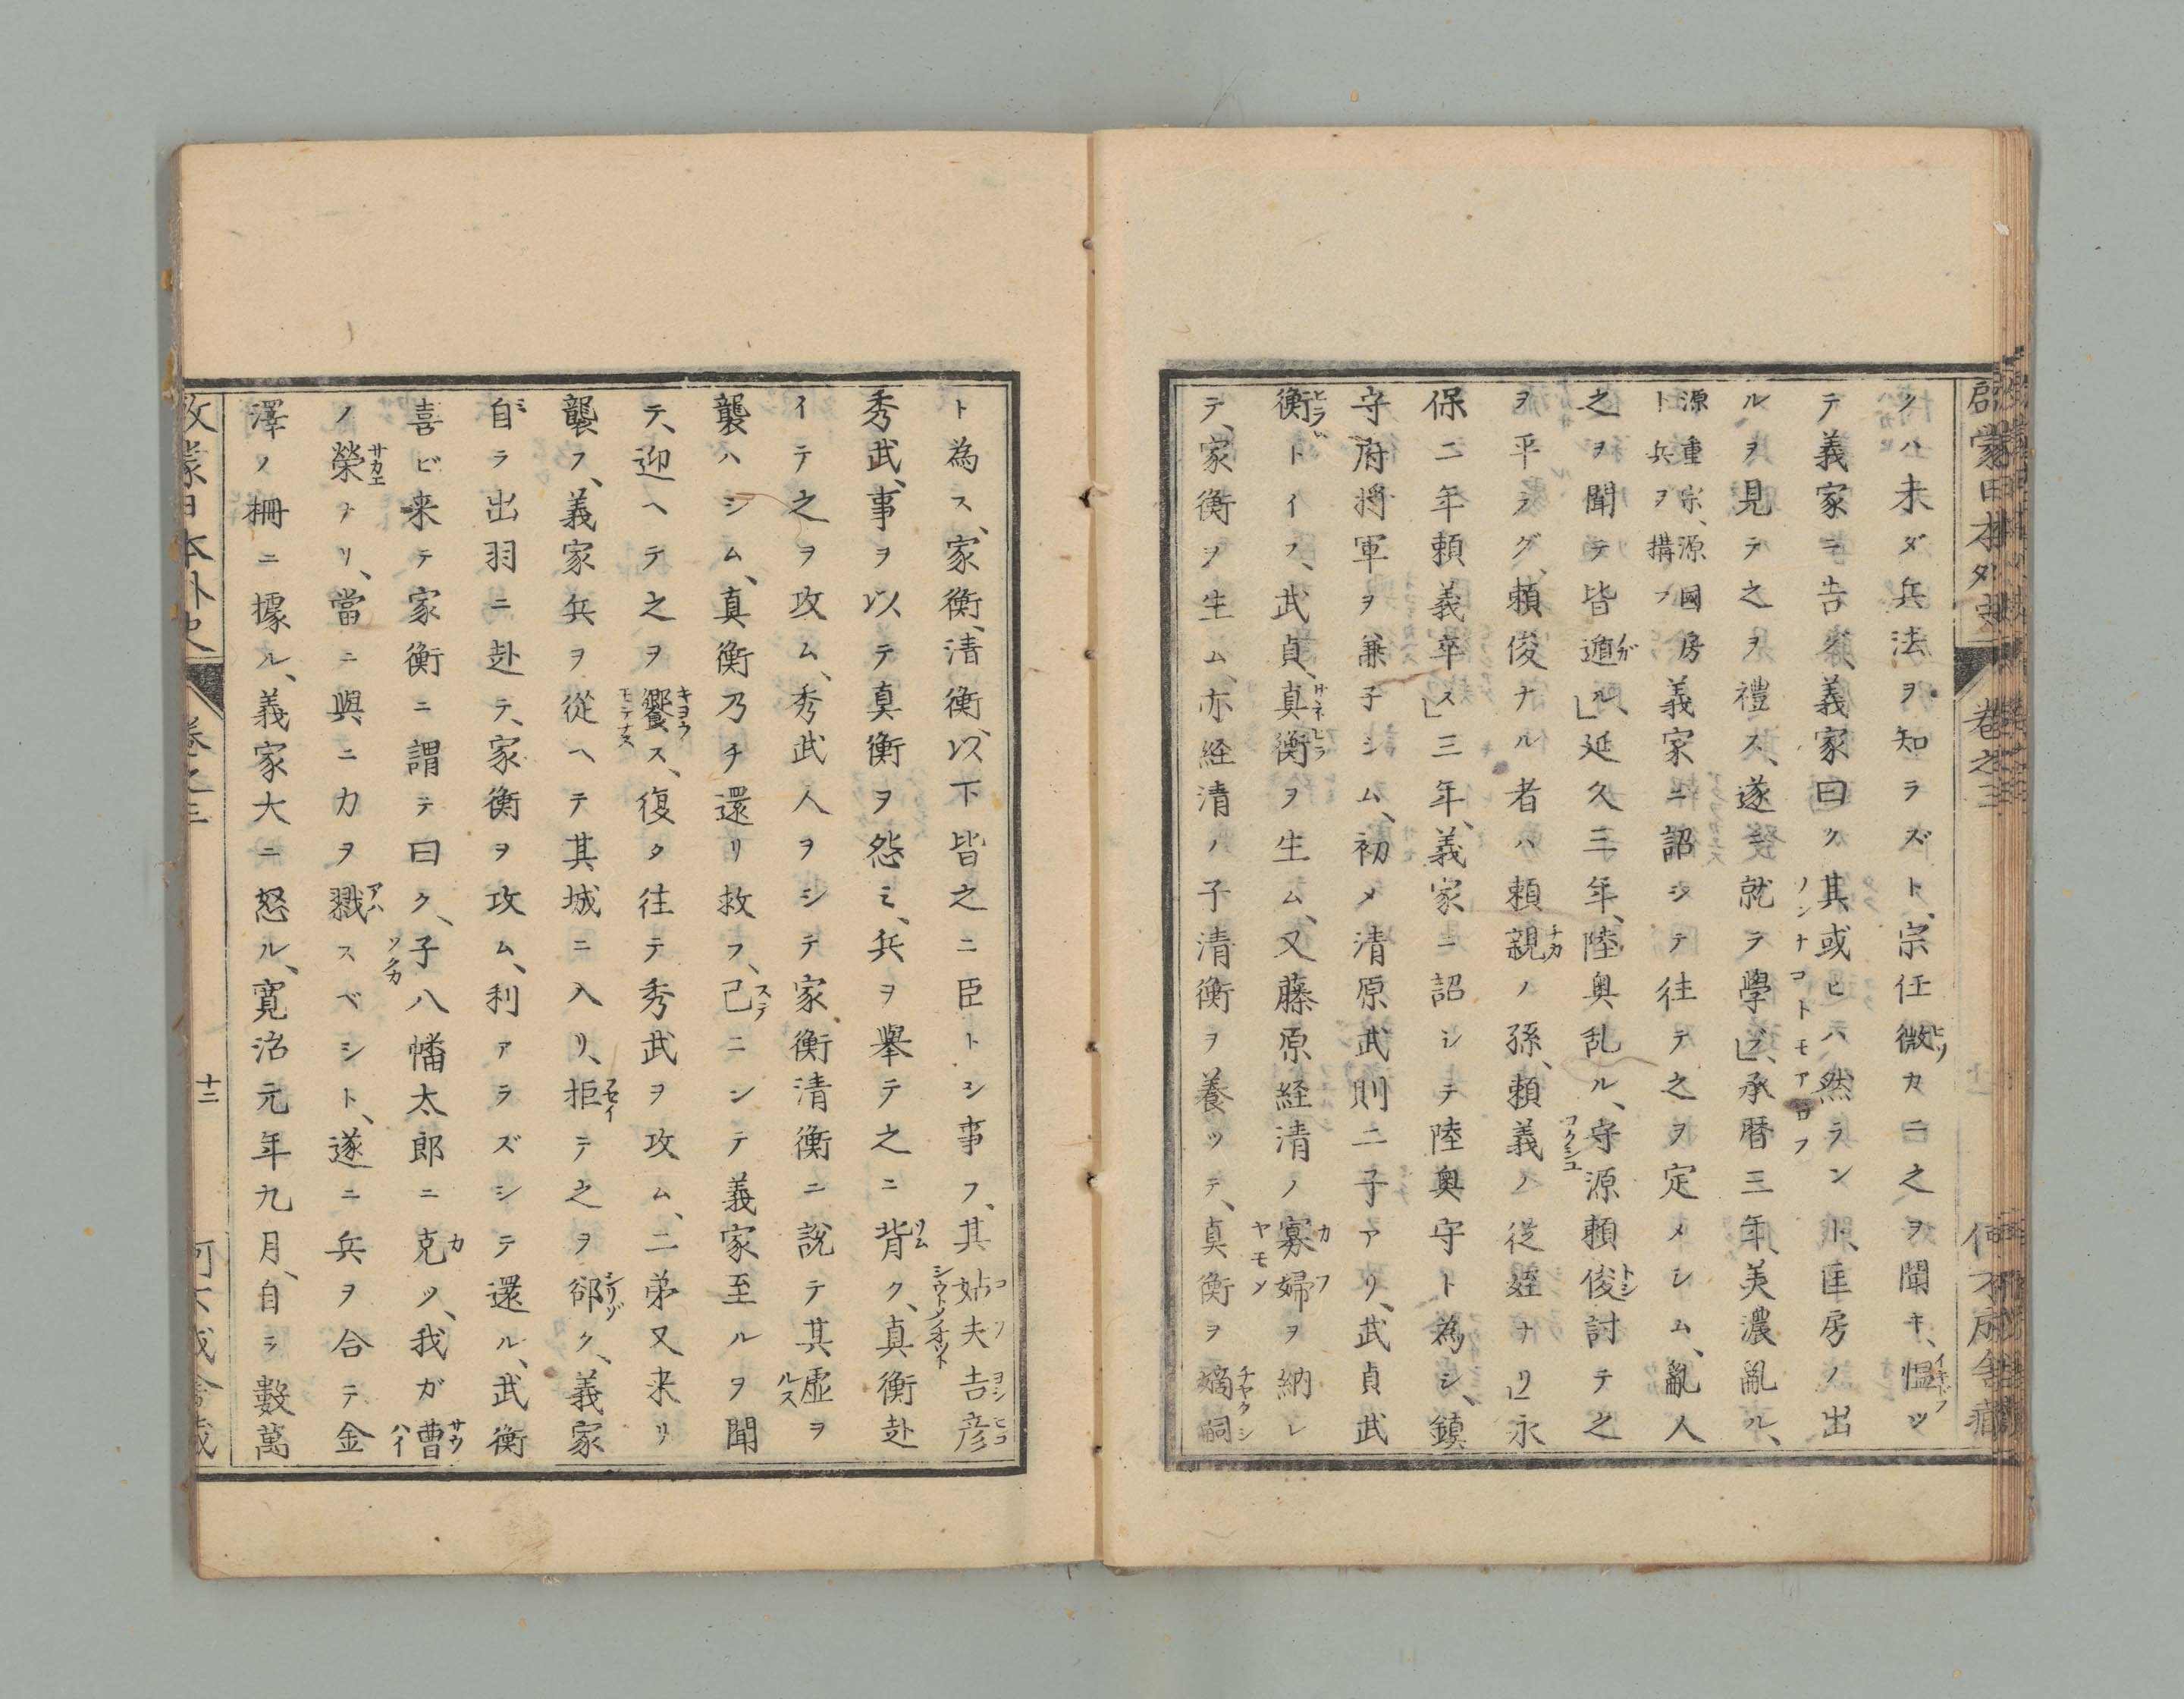 啟蒙日本外史 卷之三
ノハ未ダ兵法ヲ知ラズト、宗任微カニ之ヲ聞キ、慍ツ
テ義家ニ告グ、義家曰ク其或ヒハ然ラント、匡房ノ出
ルヲ見テ之ヲ禮ス、遂ニ就テ學ブ」、承暦三年美濃亂ル、
源重宗、源國房ト兵ヲ搆フ義家ニ詔シテ往テ之ヲ定メシム、亂人
之ヲ聞テ皆遁ル」延久三年、陸奥乱ル、守源頼俊討テ之
ヲ平ラグ、頼俊ナル者ハ頼親ノ孫、頼義ノ從姪ナリ」永
保二年頼義卒ス」三年、義家ニ詔シテ陸奥守ト為シ、鎮
守府將軍ヲ兼子シム、初メ清原武則二子アリ、武貞武
衡トイフ、武貞、真衡ヲ生ム、又藤原経清ノ寡婦ヲ納レ
テ、家衡ヲ生ム、亦経清ノ子清衡ヲ養ツテ、真衡ヲ嫡嗣
ト為ス、家衡、清衡、以下皆之ニ臣トシ事フ、其姑夫吉彦
秀武、事ヲ以テ真衡ヲ怨ミ、兵ヲ舉テ之ニ背ク、真衡赴
イテ之ヲ攻ム、秀武人ヲシテ家衡清衡ニ說テ其虛ヲ
襲ハシム、真衡乃チ還リ救フ、已ニシテ義家至ルヲ聞
テ、迎ヘテ之ヲ饗ス、復タ往テ秀武ヲ攻ム、二弟又来リ
襲フ、義家兵ヲ從ヘテ其城ニ入リ、拒テ之ヲ郤ク、義家
自ラ出羽ニ赴テ、家衡ヲ攻ム、利アラズシテ還ル、武衡
喜ビ来テ家衡ニ謂テ曰ク、子八幡太郎ニ克ツ、我ガ曹
ノ榮ナリ、當ニ與ニカヲ戮スベシト、遂ニ兵ヲ合テ金
澤ノ柵ニ據ル、義家大ニ怒ル、寛治元年九月、自ラ數萬
日本外史 卷之三 十二